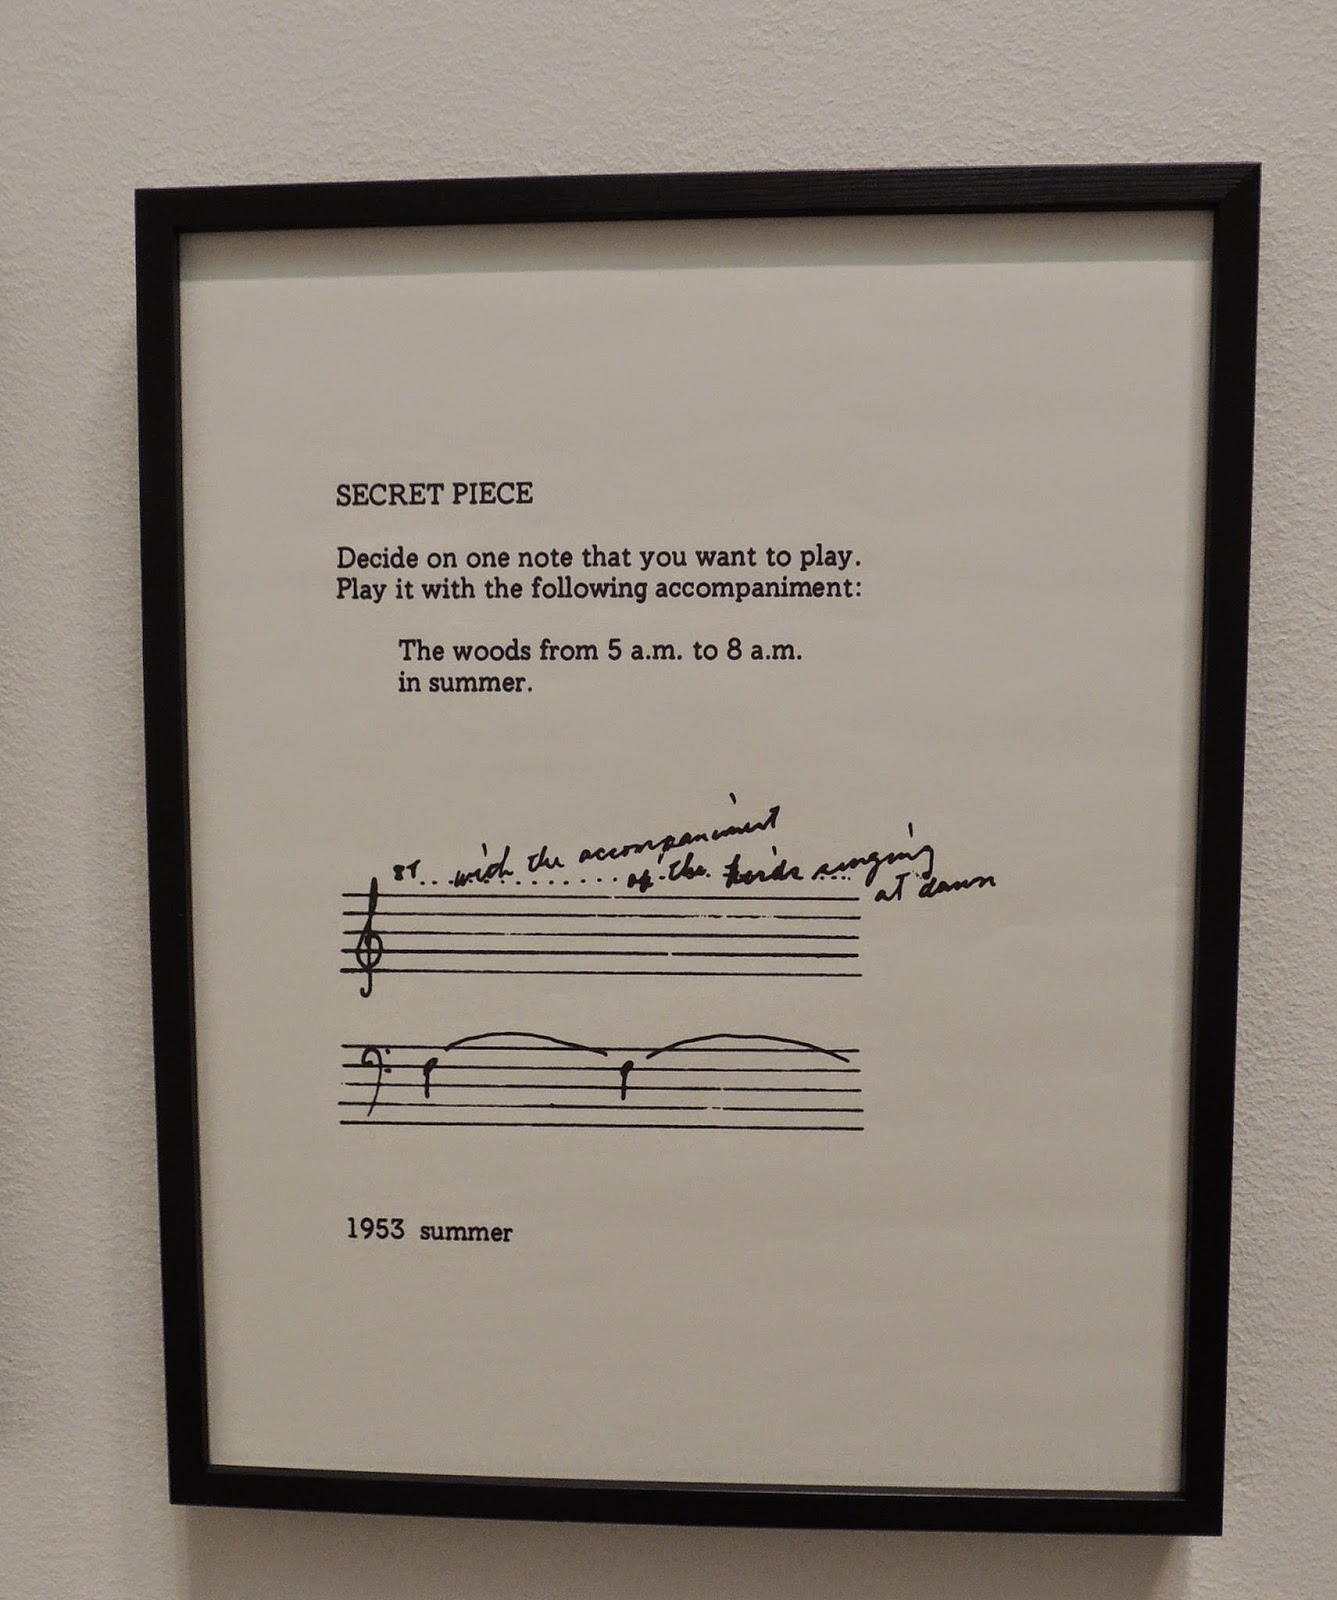 SECRET PIECE
Decide on one note that you want to play.
Play it with the following accompaniment:
The woods from 5 a.m. to 8 a.m.
in summer.
with the accompaniment
of the birds singing
at dawn
1953 summer